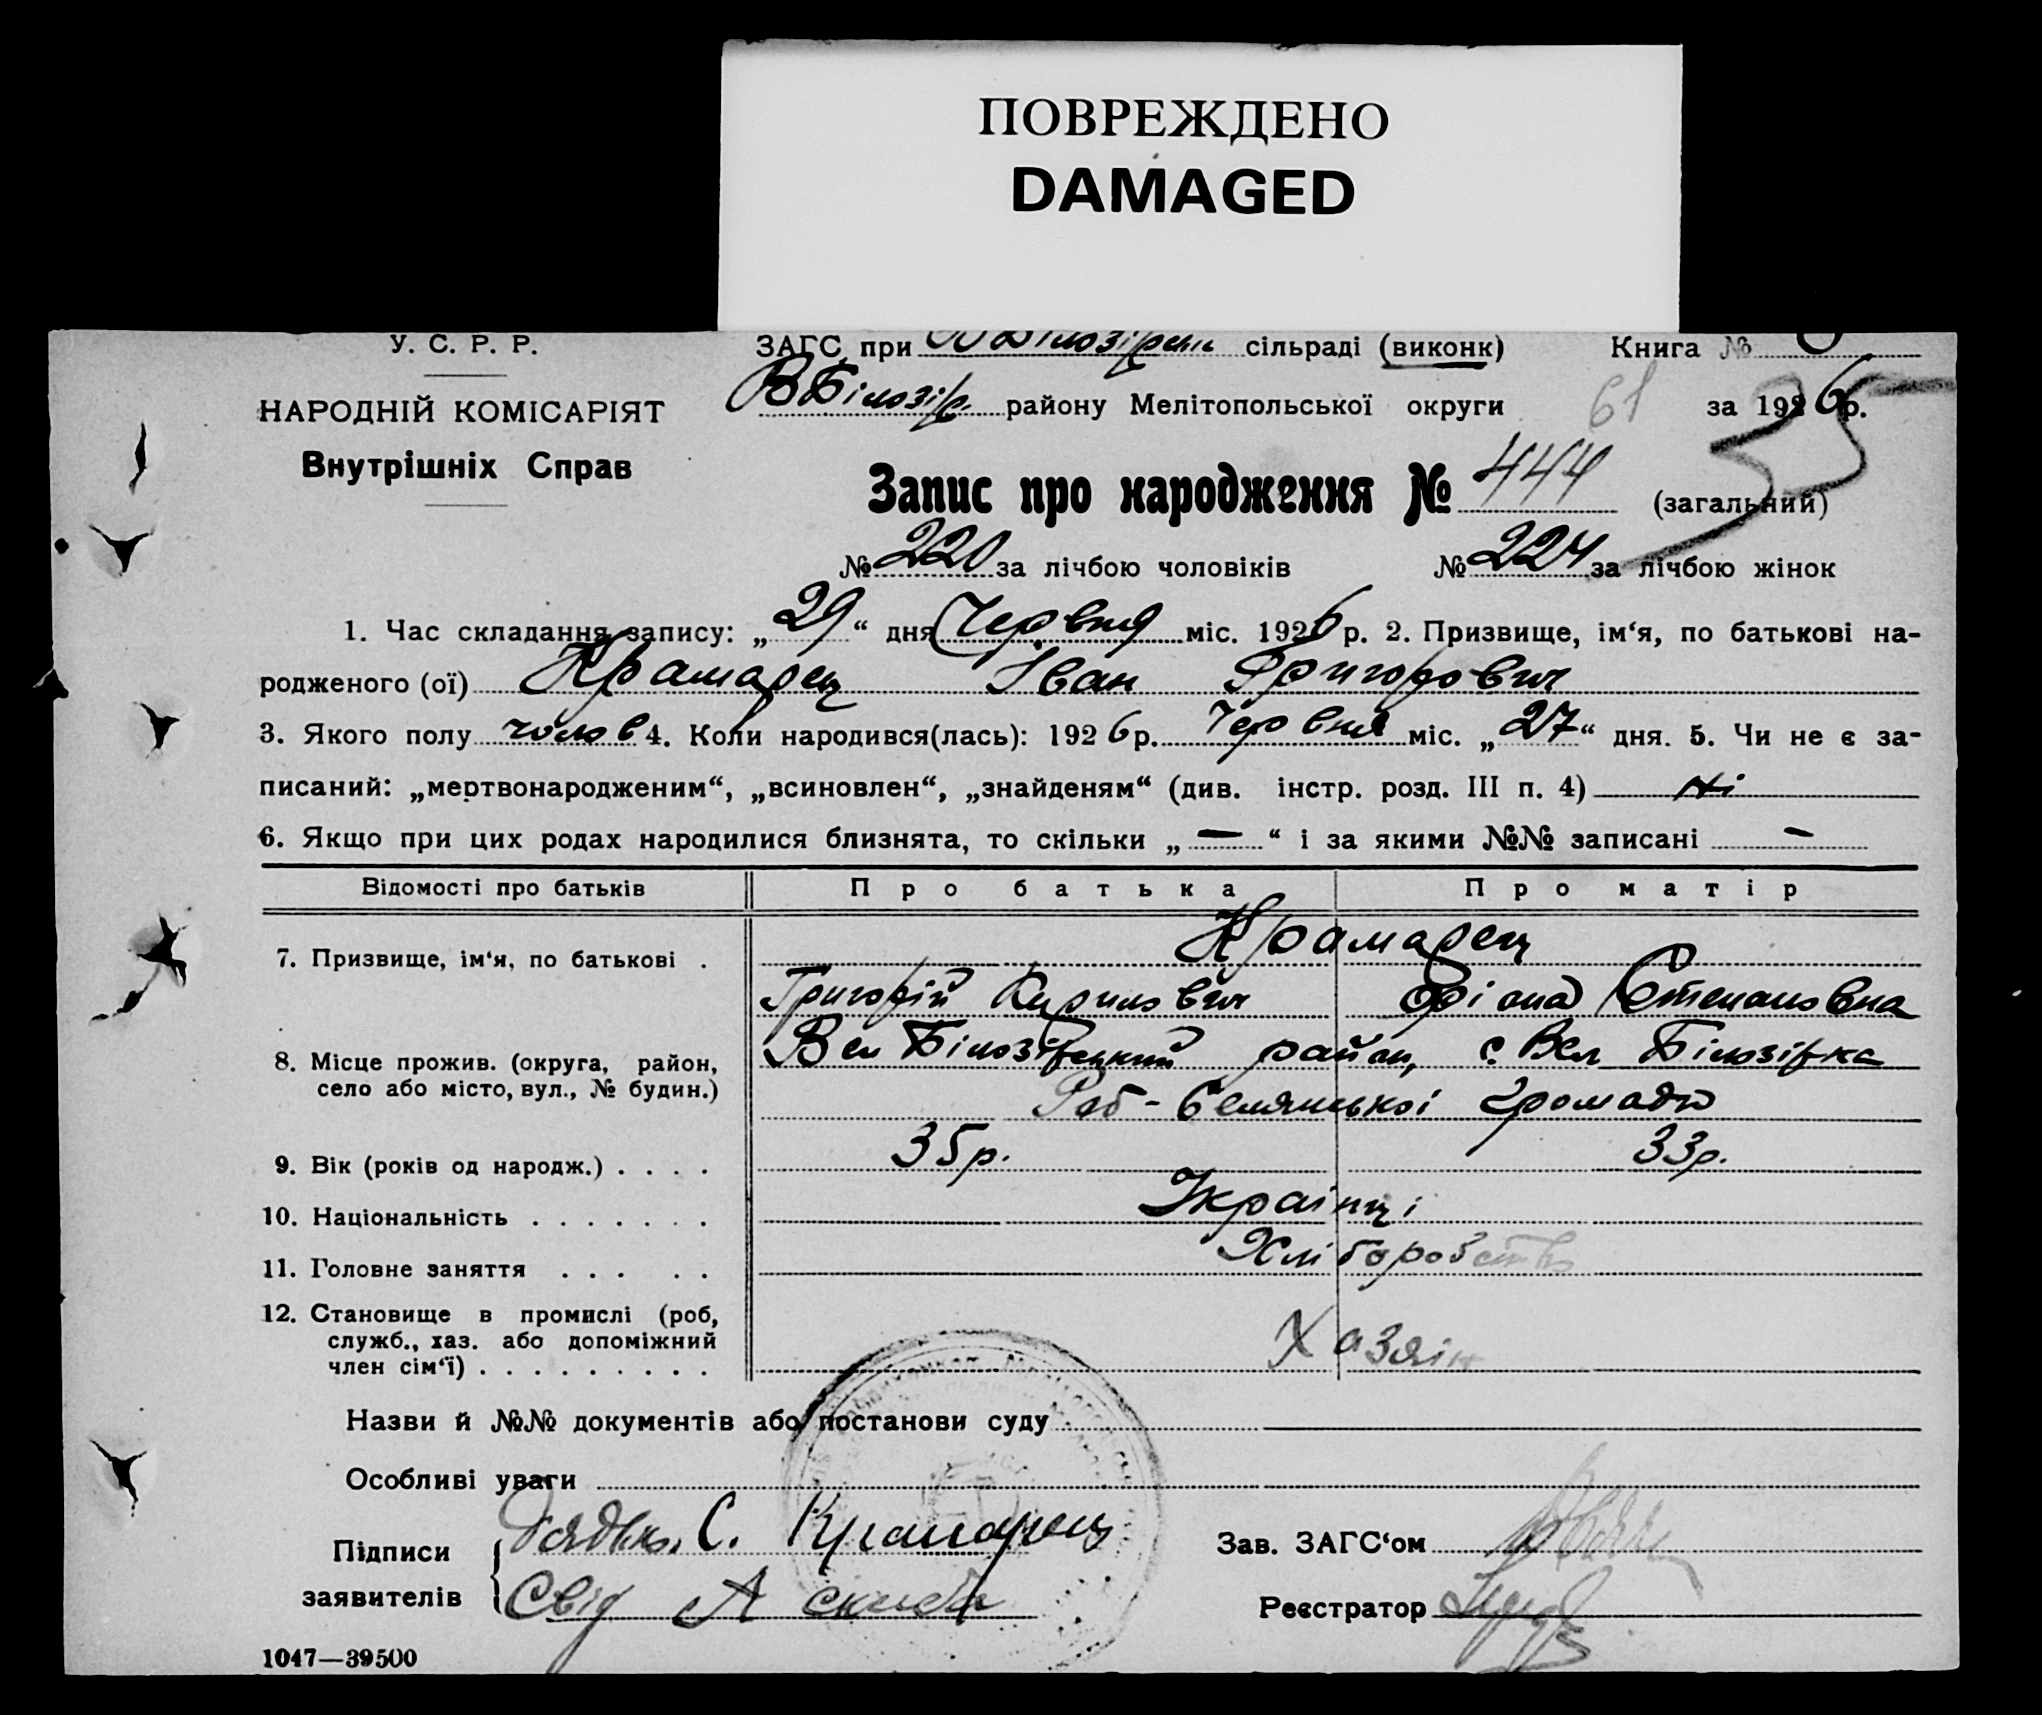 ПОВРЕЖДЕНО
DAMAGED
У. С. Р. Р.
НАРОДНІЙ КОМІСАРІЯТ
Внутрішніх Справ
ЗАГС при сільраді (виконк)
Книга №
В Білозір. району Мелітопольської округи
61
за 1926 р.
35
Запис про народження № 444 (загальний)
№ 220 за лічбою чоловіків № 224 за лічбою жінок
1. Час складання запису: „29“ дня Червня міс. 1926 р. 2. Призвище, ім‘я, по батькові на-
родженого (ої) Крамарец Іван Григорович
3. Якого полу чолов 4. Коли народився(лась): 1926 р. Червня міс. „27“ дня. 5. Чи не є за-
писаний: „мертвонародженим“, „всиновлен“, „знайденям“ (див. інстр. розд. III п. 4) ні
6. Якщо при цих родах народилися близнята, то скільки „—“ і за якими №№ записані —
Відомості про батьків Про батька Про матір
7. Призвище, ім‘я, по батькові . Крамарец
Григорій Кирилович Степановна
8. Місце прожив. (округа, район,
село або місто, вул., № будин.)
Вел Білозірський район, с. Вел Білозірка
Роб-Селянської громади
9. Вік (років од народж.) . . . . 35 р. 33 р.
10. Національність . . . . . . . Українці
11. Головне заняття . . . . . Хліборобство
12. Становище в промислі (роб,
служб., хаз. або допоміжний
член сім‘ї) . . . . . . . . . Хазяін
Назви й №№ документів або постанови суду
Особливі уваги
Підписи
заявителів
С. Крамарец
Свід А Скиба
Зав. ЗАГС‘ом
Реєстратор
1047—39500